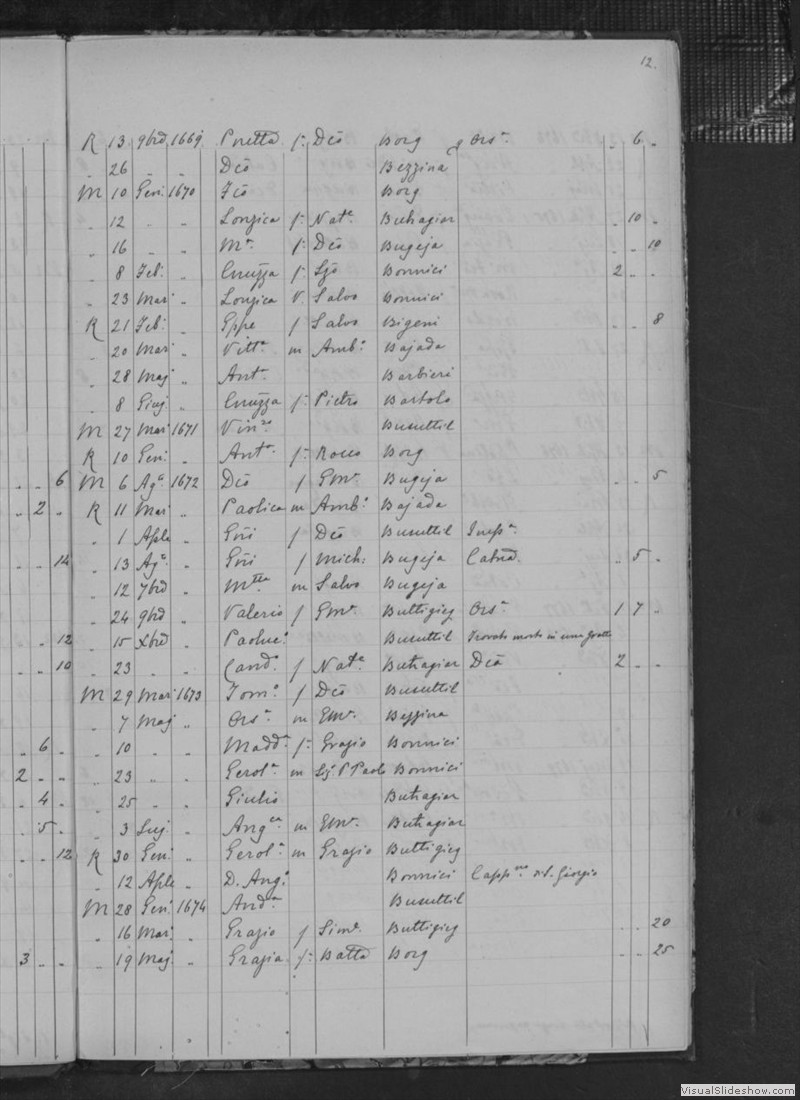 12.
R 13 9brē 1669 Pnetta f: Dēo Borg Ors.ª . 6 .
. 26 . . Dēo Bezzina
M 10 Gen: 1670 Dēo Borg
. 12 „ Lonzica f: Nat.e Buhagiar . 10 .
. 16 „ „ M.ª f: Dēo Bugeja . . 10
. 8 Feb: „ Cruzza f: Bonnici 2 . .
. 23 Mar: „ Lonzica V. Salvo Bonnici
R 21 Feb: „ Gppe f Salvo Bigeni . . 8
. 20 Mar: „ Vitt.ª m Amb.º Bajada
. 28 Maj „ Ant. Barbieri
. 8 Giuj „ Cruzza f: Pietro Bartolo
M 27 Mar: 1671 Busuttil
R 10 Gen: „ Ant.ª f: Rocco Borg
. . 6 M 6 Ag.º 1672 Dēo f Gm. Bugeja . . 5
. 2 . R 11 Mar: „ Paolica m Amb.º Bajada
. 1 Aple „ Gio f Dēo Busuttil
. . 14 . 13 Ag.º „ Gio f Mich: Bugeja . 5 .
. 12 7brē „ m Salvo Bugeja
. 24 9brē „ Valerio f Gm. Buttigieg Ors.ª 1 7 .
. . 12 . 15 Xbrē „ Paoluc.º Busuttil Trovato morto in una grotta
. . 10 . 23 . „ Cand.ª f Nat.e Buhagiar Dēa 2 . .
M 29 Mar: 1673 Tom.º f Dēo Busuttil
. 7 Maj „ Ors.ª m Gm. Bezzina
. 6 . . 10 „ „ Madd.ª f: Grazio Bonnici
2 . . . 23 „ „ Gerol.ª m P Paolo Bonnici
. 4 . . 25 „ „ Giulio Buhagiar
. 5 . . 3 Luj. „ Ang.ca m Gm. Buhagiar
. . 12 R 30 Gen: „ Gerol.ª m Grazio Buttigieg
. 12 Aple „ D. Ang.º Bonnici Capp.no di S. Giorgio
M 28 Gen: 1674 And.ª Busuttil
. 16 Mar: „ Grazio f Sim. Buttigieg . . 20
3 . . . 19 Maj „ Grazia f: Batta Borg . . 25
VisualSlideshow.com